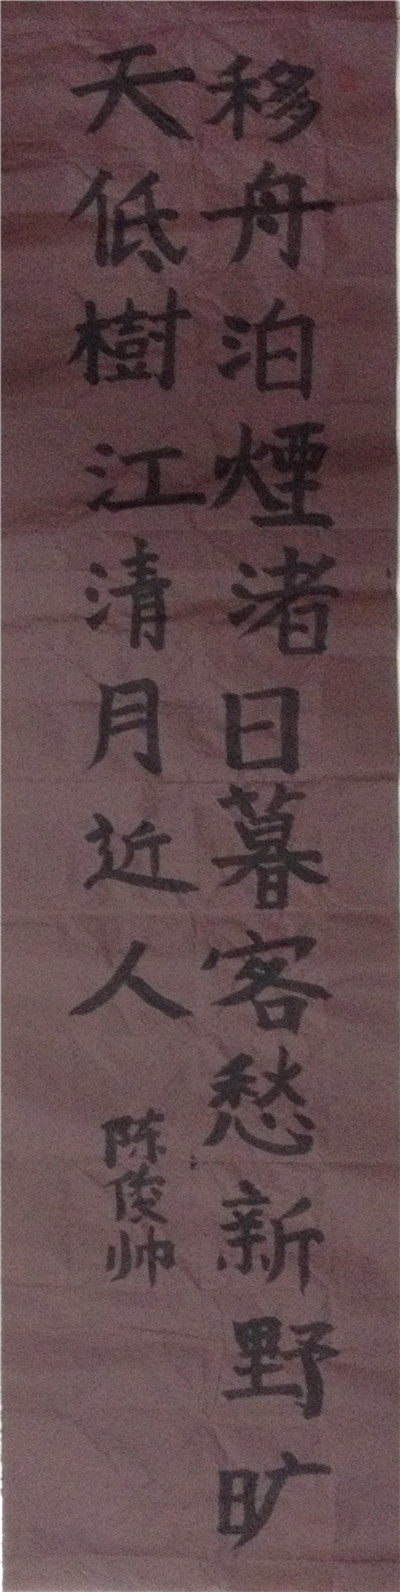 移舟泊煙渚日暮客愁新野旷
天低樹江清月近人
陈俊帅